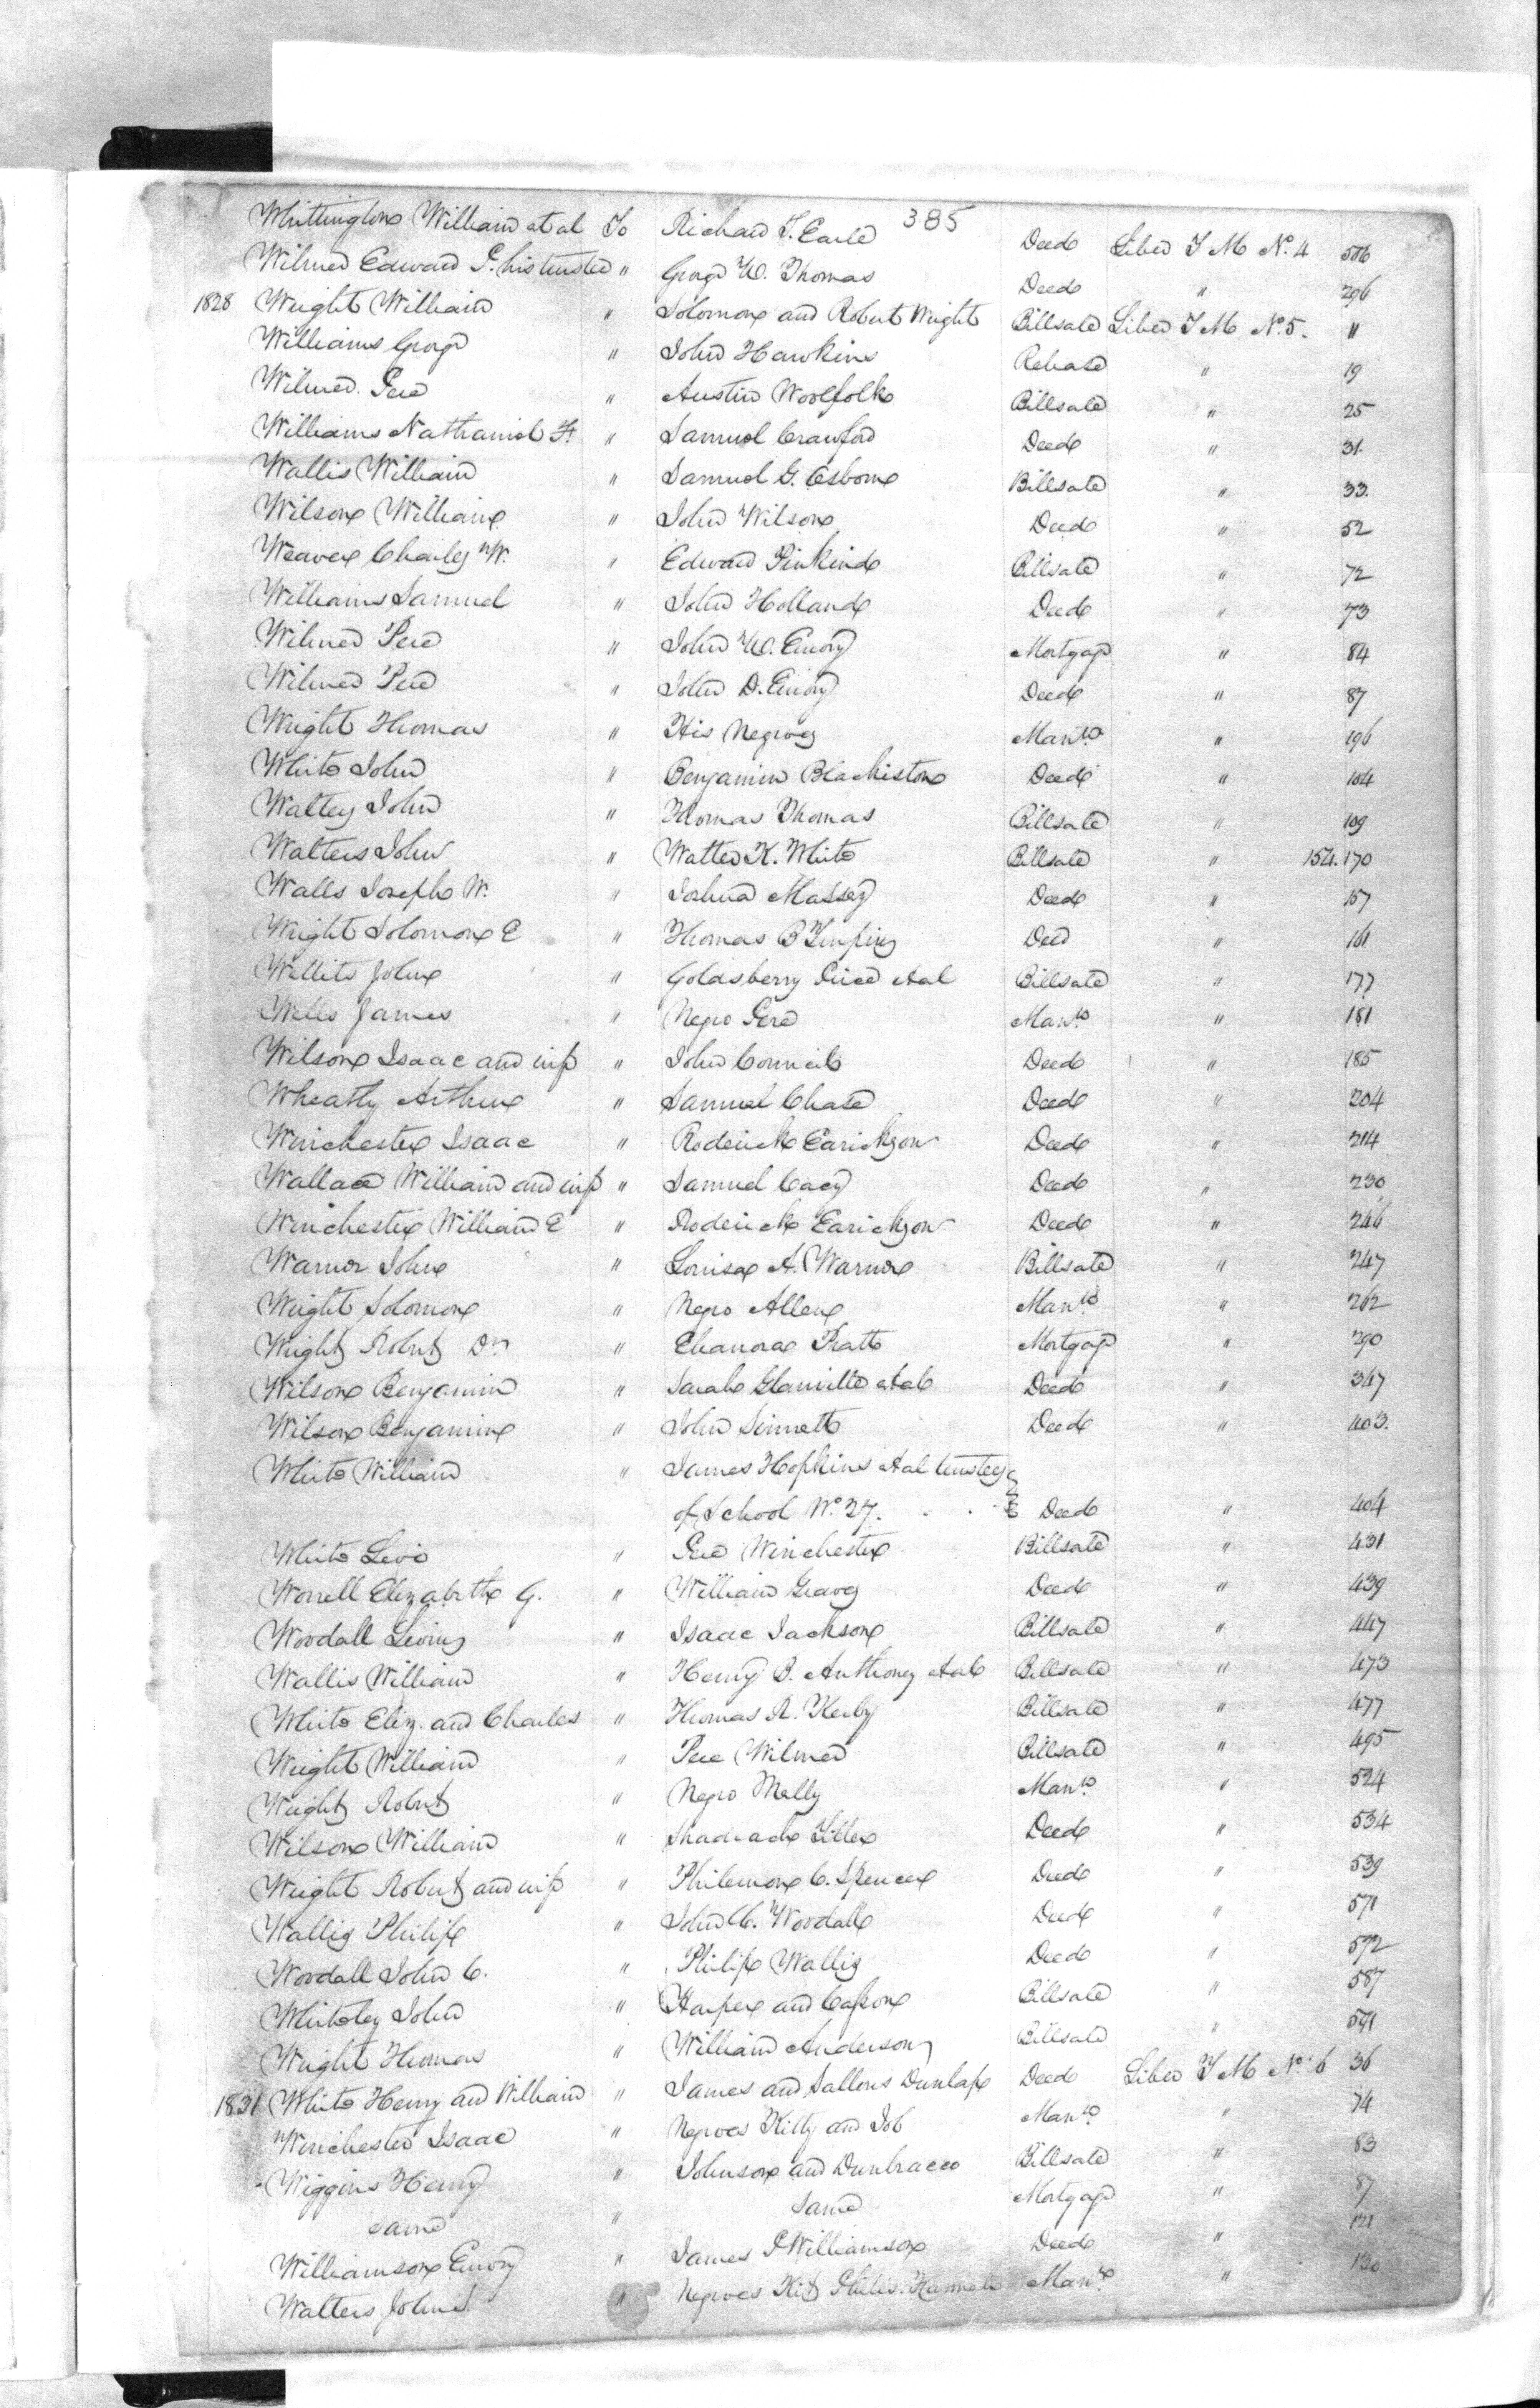 385
Whittington William et al To Richard T. Earle Deed Liber T M No. 4 506
Wilmer Edward P. his trustee " George W. Thomas Deed " 296
1828 Wright William " Solomon and Robert Wright Billsale Liber T M No. 5. 11
Williams George " John Hawkins Release " 19
Wilmer Pere " Austin Woolfolk Billsale " 25
Williams Nathaniel F. " Samuel Crawford Deed " 31.
Wallis William " Samuel G. Osborne Billsale " 33.
Wilson William " John Wilson Deed " 52
Weaver Charles W. " Edward Pinkind Billsale " 72
Williams Samuel " John Holland Deed " 73
Wilmer Pere " John W. Emory Mortgage " 84
Wilmer Pere " John D. Emory Deed " 87
Wright Thomas " His Negroes Mann. " 196
White John " Benjamin Blackiston Deed " 104
Walters John " Thomas Thomas Billsale " 109
Walters John " Walter K. White Billsale " 154.170
Walls Joseph W. " Joshua Massey Deed " 157
Wright Solomon E " Thomas B Deed " 161
Willits John " Goldsberry Price et al Billsale " 177
Wells James " Negro Pere Mann. " 181
Wilson Isaac and wife " John Council Deed " 185
Wheatly Arthur " Samuel Chase Deed " 204
Winchester Isaac " Roderick Earickson Deed " 214
Wallace William and wife " Samuel Cacy Deed " 230
Winchester William E " Roderick Earickson Deed " 246
Warner John " Louisa A. Warner Billsale " 247
Wright Solomon " Negro Allen Mann. " 262
Wright Robert Dr. " Eleanora Pratt Mortgage " 290
Wilson Benjamin " Sarah Glanville et al Deed " 347
Wilson Benjamin " John Sinnett Deed " 403.
White William " James Hopkins et al trustees
of School No. 27. Deed " 404
White Levi " Pere Winchester Billsale " 431
Worrell Elizabeth G. " William Graves Deed " 439
Woodall Levin " Isaac Jackson Billsale " 447
Wallis William " Henry B. Anthoney et al Billsale " 473
White Eliz. and Charles " Thomas R. Kerby Billsale " 477
Wright William " Pere Wilmer Billsale " 495
Wright Robert " Negro Molly Mann. " 524
Wilson William " Shadrach Liller Deed " 534
Wright Robert and wife " Philemon C. Spencer Deed " 539
Wallis Philip " John C. Woodall Deed " 571
Woodall John C. " Philip Wallis Deed " 572
Whiteley John " Harper and Cahoon Billsale " 587
Wright Thomas " William Anderson Billsale " 591
1831 White Henry and William " James and Dunlap Deed Liber T M No. 6 36
Winchester Isaac " Negroes Kitty and Job Mann. " 74
Wiggins Henry " Johnson and Dunbracco Billsale " 83
same " same Mortgage " 87
Williamson Emory " James P Williamson Deed " 121
Walters John S. " Negroes Kit Philis Hannah Mann. " 130